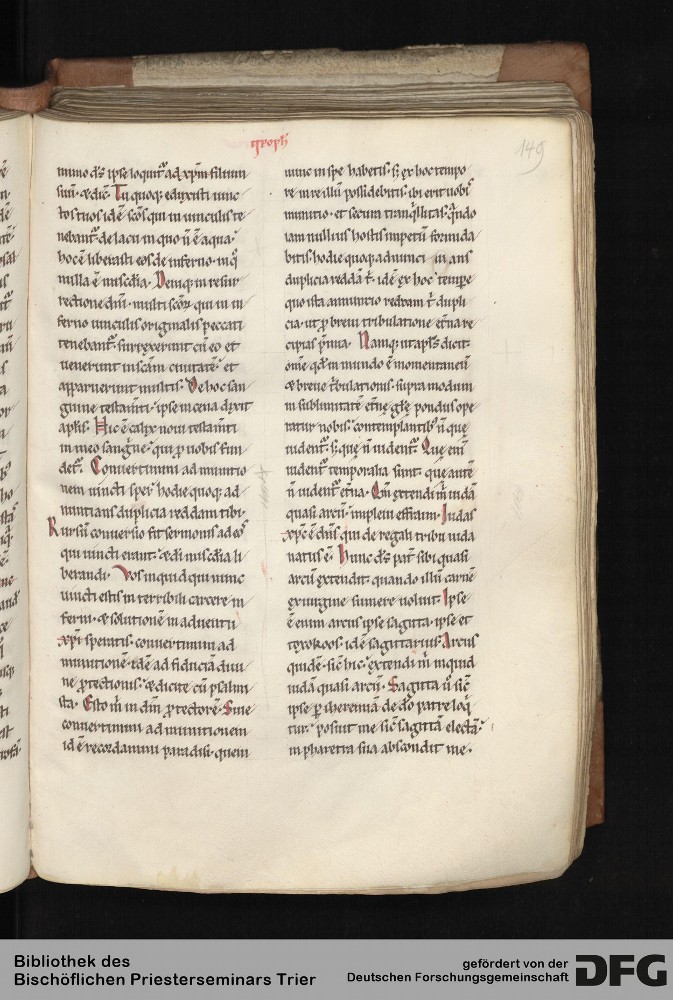 149
nunc d̄s ipse loquit᷑ ad xp̄m filium
suū. & dic̄. Tu quoq; eduxisti uinc
tos tuos id ē sc̄os qui in uinculis te
nebant᷑. de lacu in quo n̄ ē aqua.
hoc ē liberasti eos de inferno. in q̊
nulla ē mīscd̄ia. Deniq; in resur
rectione dn̄i. multi sc̄oꝝ qui in in
ferno uinculis originalis peccati
tenebant᷑. surrexerunt cū eo. et
uenerunt in sc̄am ciuitatē. et
apparuerunt multis. De hoc san
guine testam̄ti. ipse in cena dixit
apl̄is. Hic ē calix noui testam̄ti
in meo sanguine. qui ꝓ uobis fun
det᷑. Conuertimini ad munitio
nem uincti spei. hodie quoq; ad
nuntians duplicia reddam tibi.
Rursū conuersio fit sermonis ad eos
qui uincti erant. & di mīscd̄ia li
berandi. Vos inquid qui nunc
uincti estis in terribili carcere in
ferni. & solutionē in aduentu
xp̄i speratis. conuertimini ad
munitionē. id ē ad fiduciā diui
ne ꝓtectionis. & dicite cū psalmi
sta. Esto m̄ in dm̄ ꝓtectorē. Siue
conuertimini ad munitionem
id ē recordamini paradisi. quem
nunc in spe habetis. s; ex hoc tempo
re in re illū possidebitis. ibi erit uobis
munitio. et secura tranq̊llitas. q̄ndo
iam nullius hostis impetū formida
bitis. hodie quoq; adnunci in ans
duplicia reddā t̄. id ē ex hoc tempe
quo ista annuncio reddam t̄ dupli
cia. ut ꝓ breui tribulatione et̄na re
cipias p̄mia. Namq; ut apl̄s dicit.
om̄e qd̄ in mundo ē momentaneū
& breue t̄bulationis. supra modum
in sublimitate et̄nę glę pondus ope
ratur nobis. contemplantib; n̄ que
uident᷑. s; que n̄ uident᷑. Que eni
uident᷑ temporalia sunt. que autē
n̄ uident᷑ et̄na. Qm̄ extendi m̄ iudā
quasi arcū. impleui effraim. Iudas
xp̄c ē dn̄s qui de regali tribu iuda
natus ē. hunc d̄s pat̄ sibi quasi
arcū extendit. quando illū carnē
ex uirgine sumere uoluit. Ipse
ē enim arcus ipse sagitta. ipse et
toxokoos. id ē sagittarius. Arcus
quidē. sic̄ hic. extendi m̄ inquid
iudā quasi arcū. Sagitta ū sic̄
ipse ꝑ iheremiā de dō patre loq̊
tur. posuit me sic̄ sagittā electā.
in pharetra sua abscondit me.
Bibliothek des
Bischöflichen Priesterseminars Trier
gefördert von der
Deutschen Forschungsgemeinschaft
DFG